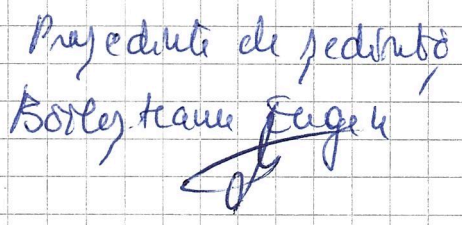 Președinte de ședință
Boileșteanu Eugen